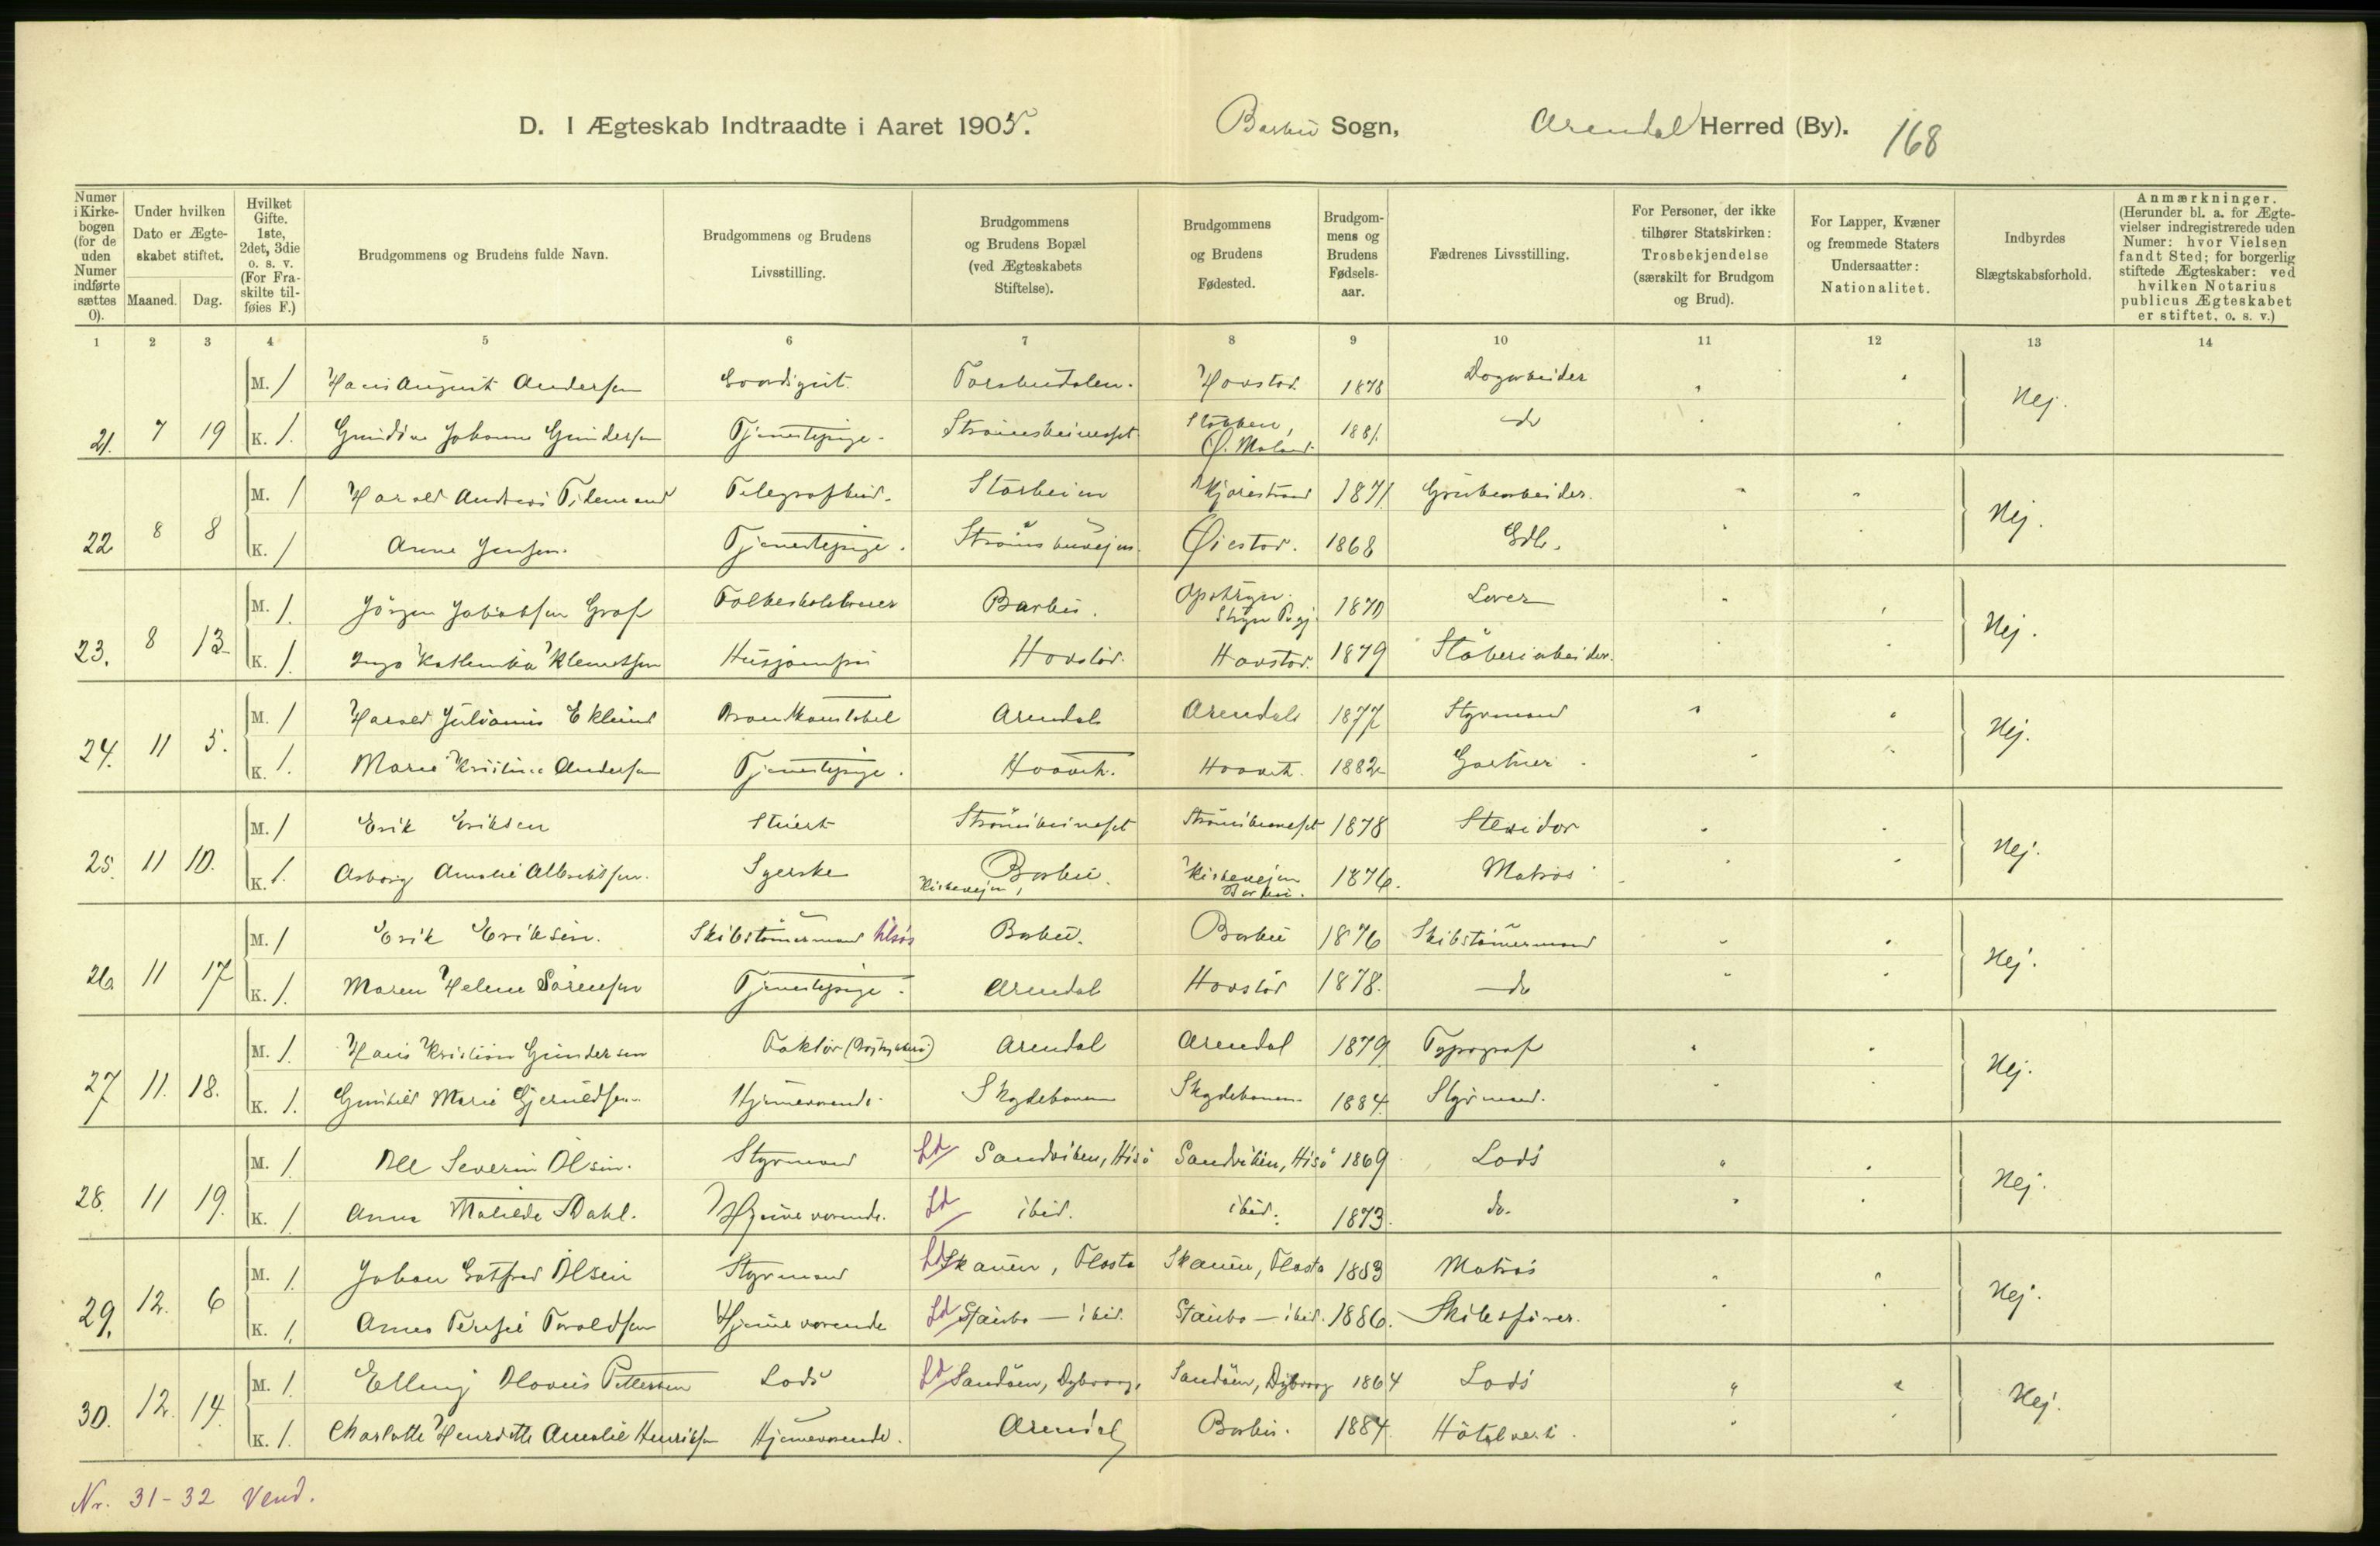 D. I Ægteskab Indtraadte i Aaret 1905. Barbu Sogn, Arendal Herred (By). 168
Numer i Kirkebogen (for de uden Numer indførte sættes 0). Under hvilken Dato er Ægteskabet stiftet. Maaned. Dag. Hvilket Gifte. 1ste, 2det, 3die o. s. v. (For Fraskilte tilføies F.) Brudgommens og Brudens fulde Navn. Brudgommens og Brudens Livsstilling. Brudgommens og Brudens Bopæl (ved Ægteskabets Stiftelse). Brudgommens og Brudens Fødested. Brudgommens og Brudens Fødselsaar. Fædrenes Livsstilling. For Personer, der ikke tilhører Statskirken: Trosbekjendelse (særskilt for Brudgom og Brud). For Lapper, Kvæner og fremmede Staters Undersaatter: Nationalitet. Indbyrdes Slægtskabsforhold. Anmærkninger. (Herunder bl. a. for Ægtevielser indregistrerede uden Numer: hvor Vielsen fandt Sted; for borgerlig stiftede Ægteskaber: ved hvilken Notarius publicus Ægteskabet er stiftet, o. s. v.)
1 2 3 4 5 6 7 8 9 10 11 12 13 14
M. 1 Hans August Andersen Torsbudalen. 1878 Dagarbeider
21. 7 19 K. 1. Gundine Johanne Gundersen Tjenestepige. Strømsbuneset Ø. Moland 1881. do Nej.
M. 1 Harald Andreas Tidemand Telegrafbud. 1871. Grubearbeider.
22 8 8 K. 1 Anne Jensen. Tjenestepige. Strømsbuveien. Øiestad. 1868 Gdb. Nej.
M. 1. Jörgen Jakobsen Graf Folkeskolelærer Barbu. Opstryn. Stryn Pgj. 1870
23. 8 13 K. 1. Klemetsen Husjomfru Havstad. Havstad. 1879 Støberiarbeider. Nej.
M. 1 Harald Julianus Eklund Brandkonstabel Arendal Arendal 1877 Styrmand
24. 11 5. K. 1. Marie Kristine Andersen Tjenestepige. 1882 Gartner. Nej.
M. 1 Erik Eriksen Stuert Strømsbuneset Strømsbuneset 1878 Stevidor
25. 11 10. K. 1. Asborg Amalie Albretsen. Syerske Kirkeveien, Barbu. Kirkeveien Barbu. 1876. Matros Nej.
M. 1 Erik Eriksen. Skibstømmermand tilsøs Barbu. Barbu 1876 Skibstømmermand
26 11 17 K. 1. Maren Helene Sørensen Tjenestepige. Arendal Havstad 1878. do Nej.
M. 1. Hans Kristian Gundersen Faktor Arendal Arendal 1879 Typograf
27 11. 18. K. 1. Gunhild Marie Gjeruldsen Hjemmeværende. Skydebanen Skydebanen 1884. Styrmand. Nej.
M. 1. Ole Severin Olsen. Styrmand Ld Sandviken, Hisö Sandviken, Hisö 1869 Lods
28. 11 19. K. 1 Anna Matilde Dahl. Hjemmeværende. Ld ibid. ibid. 1873. do. Nej.
M. 1. Johan Gotfred Olsen Styrmand Ld Skauen, Flosta Skauen, Flosta 1883 Matros
29. 12. 6 K. 1. Anna Terese Taraldsen Hjemmeværende Ld Staubo — ibid. Staubo — ibid. 1886. Skibsfører. Nej.
M. 1. Elling Olavus Pettersen Lods Ld Sandöen, Dybvaag, Sandöen, Dybvaag 1864 Lods
30. 12. 14. K. 1. Charlotte Henriette Amalie Henriksen Hjemmeværende. Arendal Barbu. 1884. Hôtelvert. Nej.
Nr. 31-32 Vend.